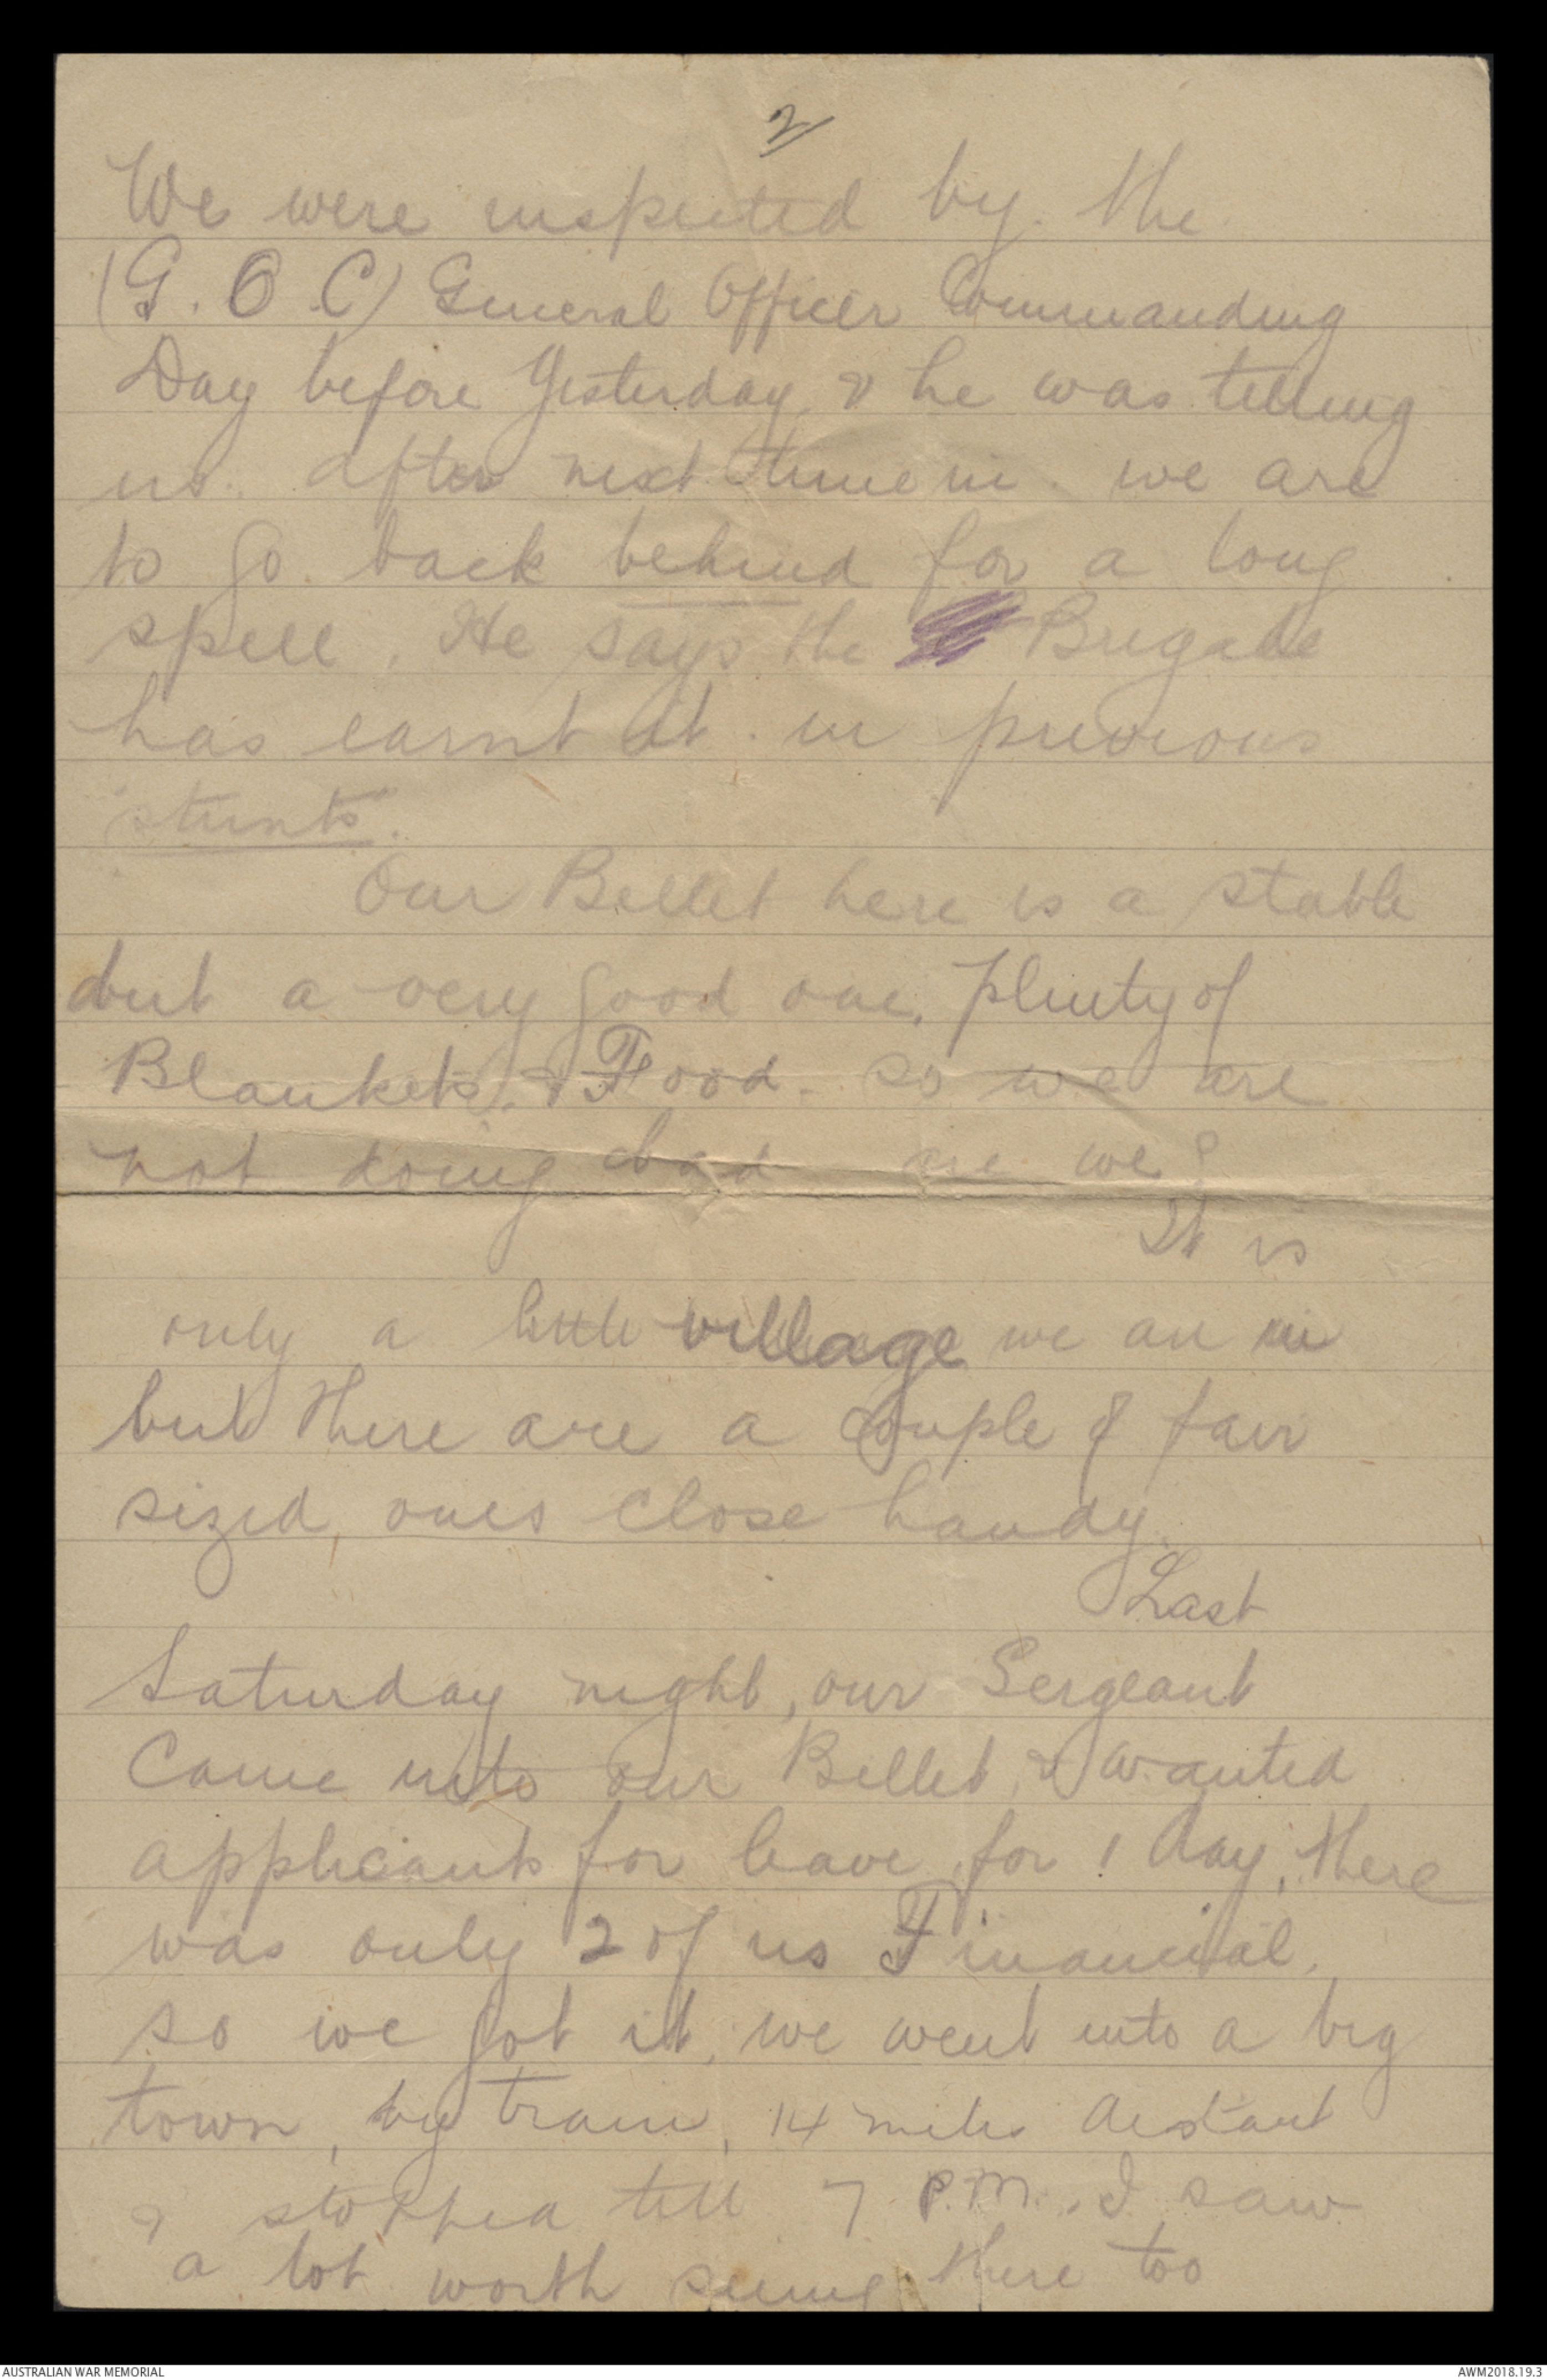 2/
We were inspected by the
(G. O. C) General Officer Commanding
Day before Yesterday, & he was telling
us. after next time in. we are
to go. back behind for a long
spell. He says the Brigade
has earnt it. in previous
"stunts".
Our Billet here is a stable
but a very good one, plenty of
Blankets, & Food. so we are
not doing bad are we?
It is
only a little village we are in
but there are a couple of fair
sized, ones close handy.
Last
Saturday night, our Sergeant
Came into our Billet, & wanted
applicants for leave, for 1 day, there
was only 2 of us Financial,
so we got it, we went into a big
town, by train, 14 miles distant
& stopped till 7 P.M. I saw
a lot worth seeing there too
AUSTRALIAN WAR MEMORIAL
AWM2018.19.3